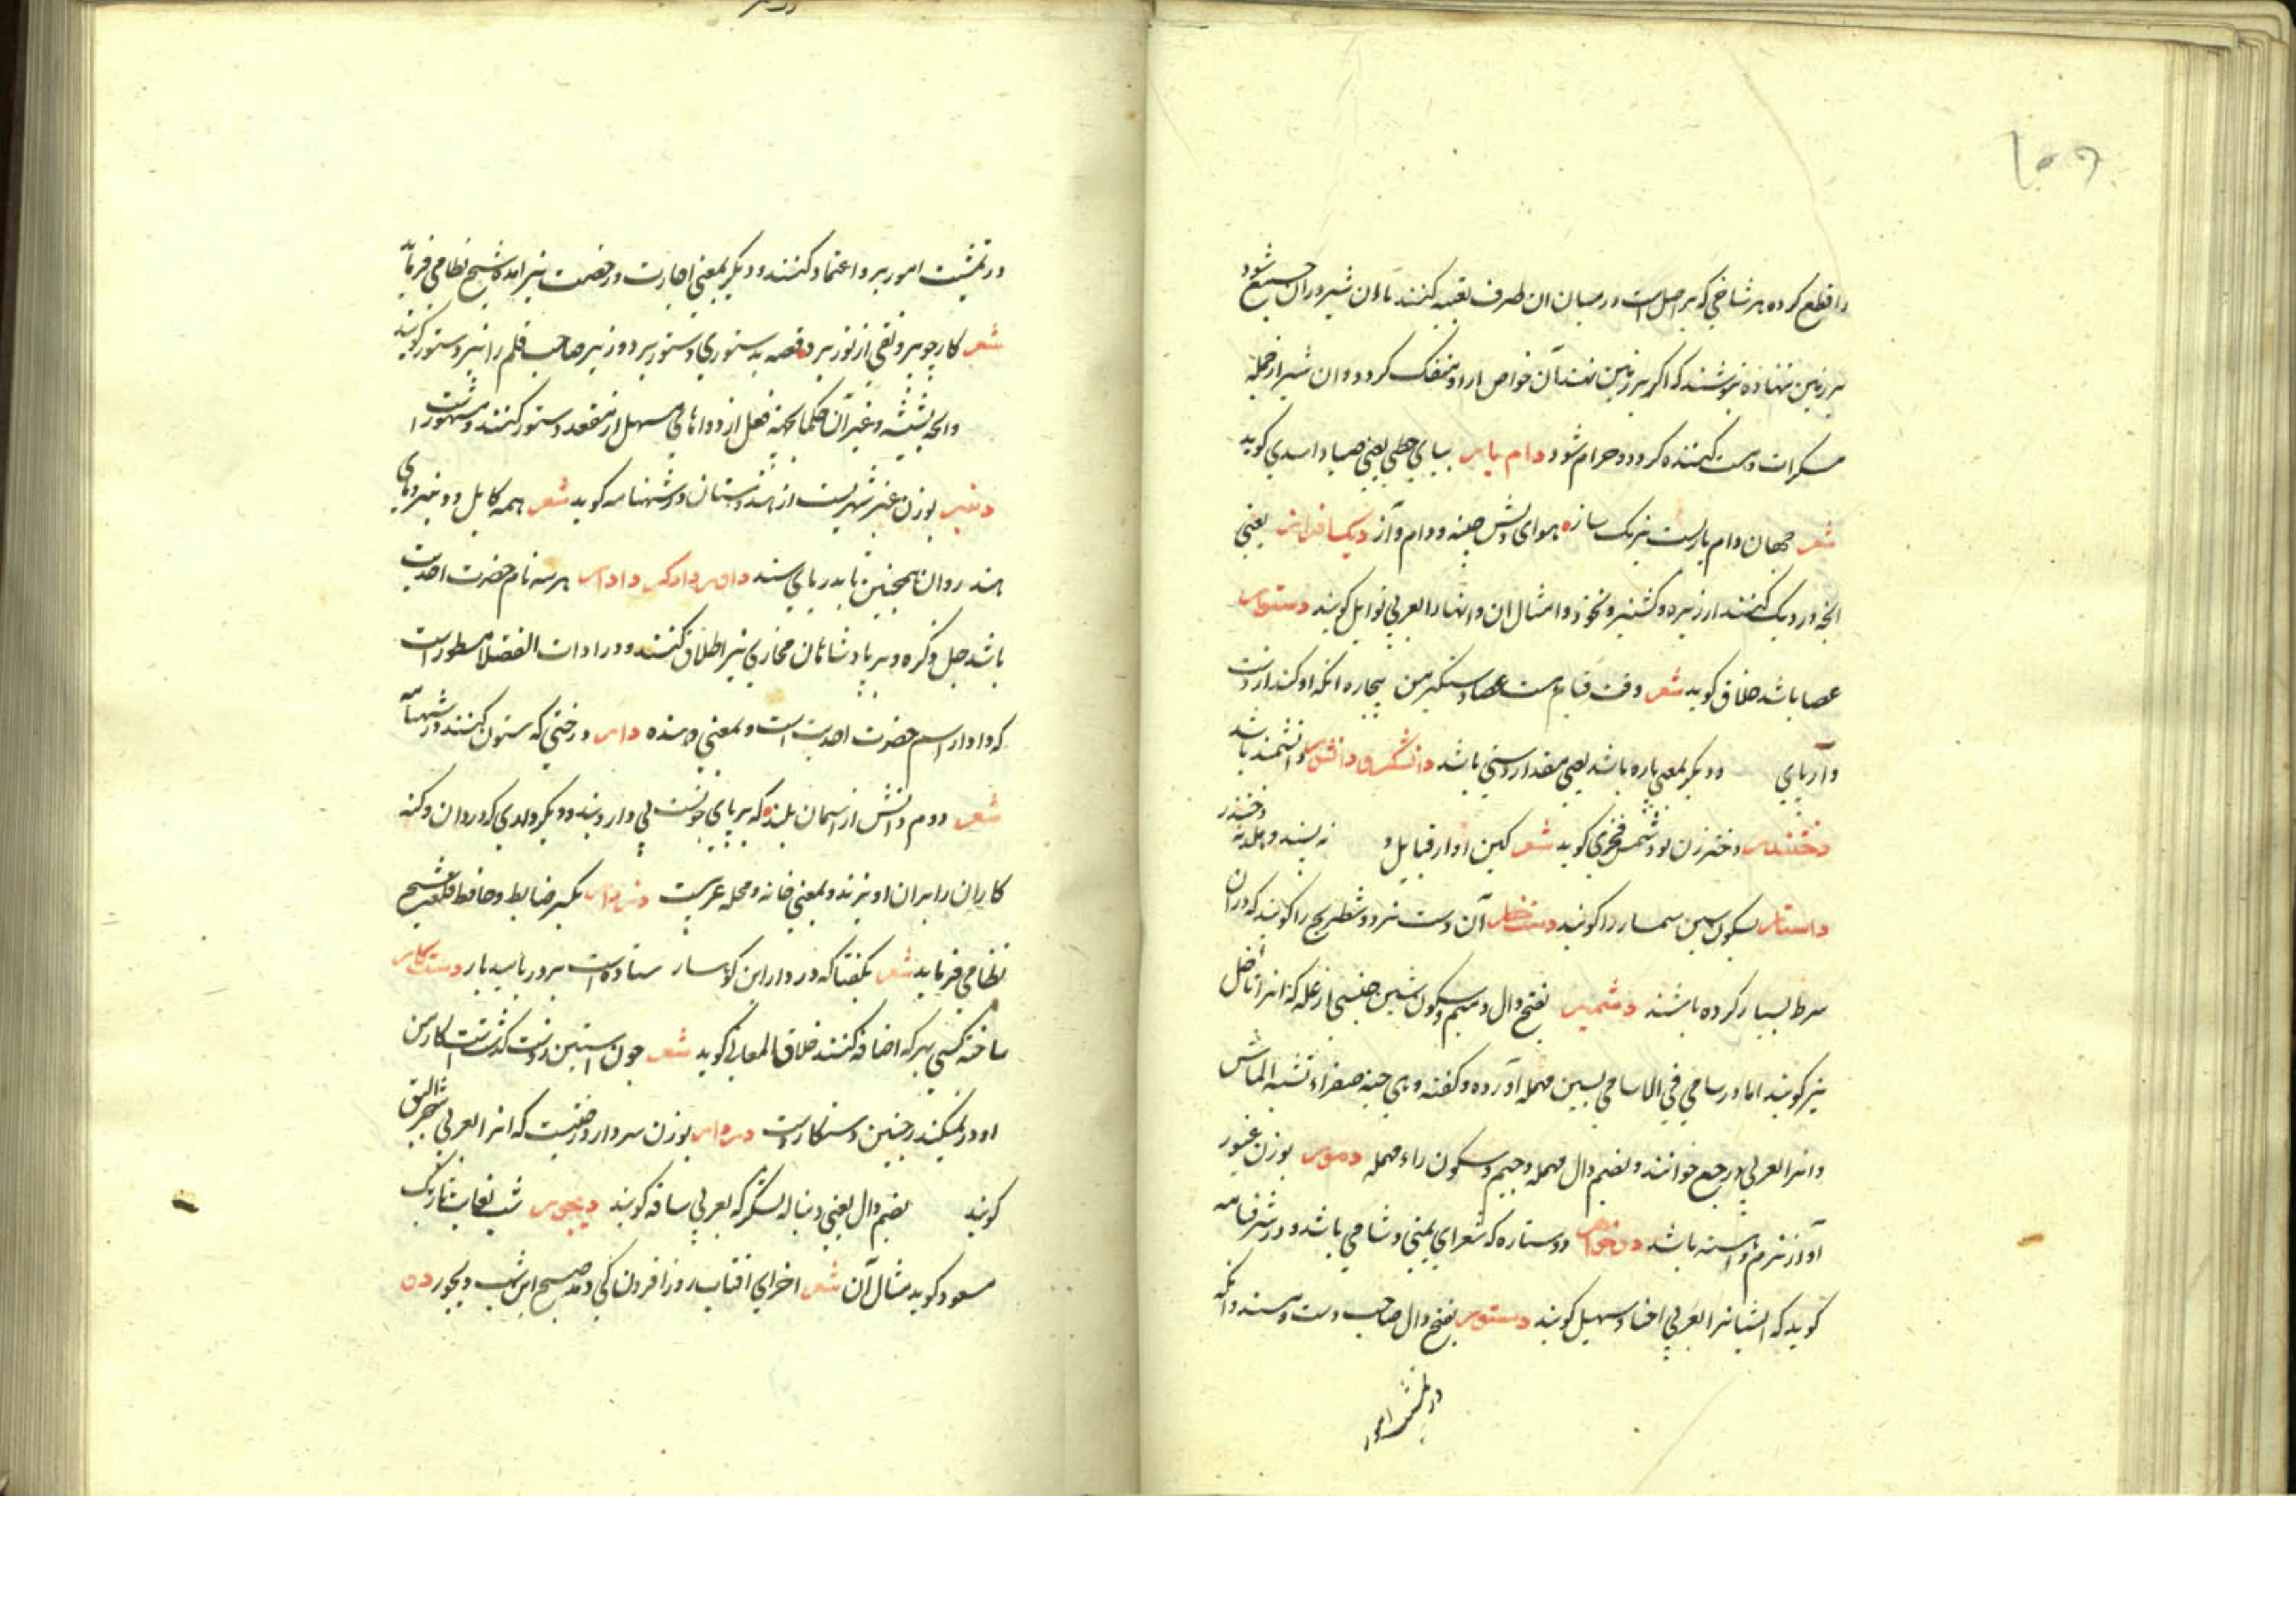 را قطع کرده هر شاخی که بر اصل است در میان ان ظرف تعبیه کنند تا ان شیر در ان جمع شود
بر زمین ننهاده بنوشند که اکر بر زمین نهند آن خواص ازاو منفک کردد و ان شیر از جمله
مسکرات و مست کننده کردد و حرام شود دام یار بیای حطی یعنی صیاد اسدی کوید
شعر جهان دام یاریست نیرنک ساز هوای دلش چینه و دام آز دیک افزار یعنی
انچه در دیک کنند از زیره و کشنیز و نخود و امثال ان و انها را بعربی توابل کویند دستوار
عصا باشد خلاق کوید شعر وقت قیام هست عصا دستکیر من بیچاره انکه او کند از دست
و آر پای ودیکر بمعنی یاره باشد یعنی مقدار دستی باشد دانشکر و دانشور دانشمند باشد
دختندر دختر زن بود شمس فخری کوید شعر کمین از قبایل و نه بیند دختندر
داستار بسکون سین سمسار را کویند دستخار آن دست نرد و شطرنج را کویند که در ان
شرط بسیار کرده باشند دشمیر بفتح دال و میم و سکون شین جنسی از غله که انرا ناخل
نیز کویند اما در سامی فی الاسامی بسین مهمله آورده و کفته و هی حبة صفراء تشبه الماش
و انرا بعربی خوانند و بضم دال مهمله و جیم و سکون راء مهمله دمور بوزن غیور
آواز نرم و اهسته باشد دوخواهر دو ستاره که شعرای یمنی و شامی باشد و در شرفنامه
کوید که ایشانرا بعربی اختا سهیل کویند دستور بفتح دال صاحب دست و مسند و انکه
در تمشیت امور
در تمشیت امور برو اعتماد کنند و دیکر بمعنی اجازت و رخصت نیز امده شیخ نظامی فرماید
شعر کار چو بی رونقی از نور برد قصه بدستوری دستور برد و وزیر صاحب قلم را نیز دستور کویند
وانچه نبشته و غیر آن حکما بجهة فعل از دواهای مسهل از مقعد دستور کنند مشهور است
دنبر بوزن عنبر شهریست از هندوستان در شهنامه کوید شعر همه کابل و دنبر و مای
هند روان همچنین تا بدریای سند داور دادکر دادار هر سه نام حضرت احدیت
باشد جل ذکره و بر پادشاهان مجازی نیز اطلاق کنند و در ادات الفضلا مسطور است
که دادار اسم حضرت احدیت است و بمعنی دهنده دار درختی که ستون کنند در شهنامه
شعر دوم دانش از اسمان بلند که بر پای چونست بی دار و بند و دیکر داری که دزدان و کنه
کاران را بران اویزند و بمعنی خانه و محله عربیست دزدار بکسر ضابط و حافظ قلعه شیخ
نظامی فرماید شعر بکفتا که دزدار این کوهسار ستاده است بر در بامید بار دستکار
ساخته کسی بهر که اضافه کنند خلاق المعانی کوید شعر چون استین ز دست کذشتست کار من
او در نمیکند چنین دستکار دست دردار بوزن سردار درختیست که انرا بعربی شجر البق
کویند بضم دال یعنی دنباله لشکر که بعربی ساقه کویند دیجور شب بغایت تاریک
مسعود کوید مثال آن شعر اخر ای افتاب روز افزون کی دمد صبح این شب دیجور ده